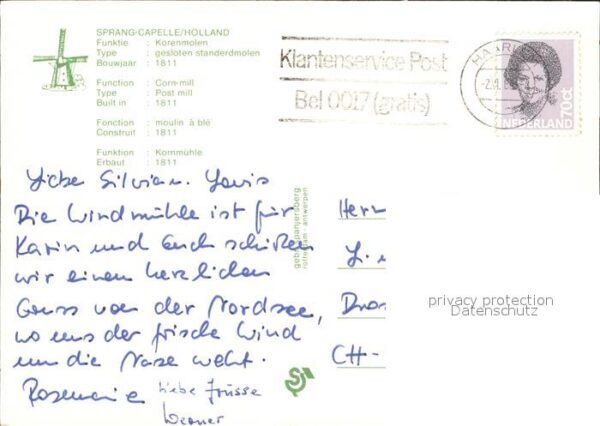 SPRANG-CAPELLE/HOLLAND
Funktie : Korenmolen
Type : gesloten standerdmolen
Bouwjaar : 1811
Function : Corn-mill
Type : Post mill
Built in : 1811
Fonction : moulin à blé
Construit : 1811
Funktion : Kornmühle
Erbaut : 1811
Klantenservice Post
Bel 0017 (gratis)
HAARL
NEDERLAND 70ct
Liebe Silvia u. Louis
Die Windmühle ist für
Karin und Euch schicken
wir einen herzlichen
Gruss von der Nordsee,
wo uns der frische Wind
um die Nase weht.
Rosemarie liebe Grüsse
Werner
gebr. spanjersberg
rotterdam - antwerpen
Herr
CH-
privacy protection
Datenschutz